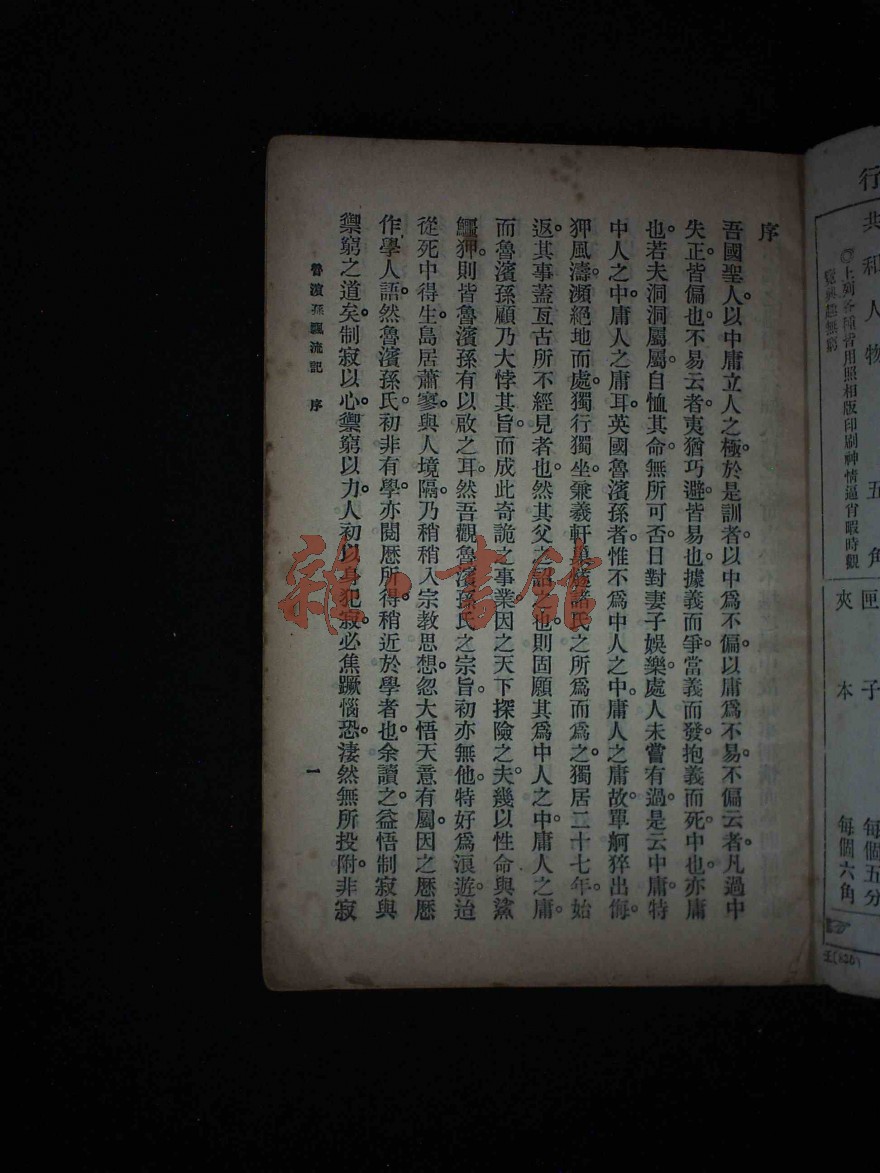 序
吾國聖人。以中庸立人之極。於是訓者。以中爲不偏。以庸爲不易。不偏云者。凡過中
失正。皆偏也。不易云者。夷猶巧避。皆易也。據義而爭。當義而發。抱義而死。中也。亦庸
也。若夫洞洞屬屬。自恤其命。無所可否。日對妻子娛樂。處人未嘗有過。是云中庸。特
中人之中。庸人之庸耳。英國魯濱孫者。惟不爲中人之中。庸人之庸。故單舸猝出。侮
狎風濤。瀕絕地而處。獨行獨坐。兼羲軒諸氏之所爲而爲之。獨居二十七年。始
返。其事蓋亙古所不經見者也。然其父之詔之也。則固願其爲中人之中。庸人之庸。
而魯濱孫顧乃大悖其旨。而成此奇詭之事業。因之天下探險之夫。幾以性命與鯊
鱷狎。則皆魯濱孫有以啟之耳。然吾觀魯濱孫氏之宗旨。初亦無他。特好爲浪遊。迨
從死中得生。島居蕭寥。與人境隔。乃稍稍入宗教思想。忽大悟天意有屬。因之歷歷
作學人語。然魯濱孫氏初非有學。亦閱歷所得。稍近於學者也。余讀之。益悟制寂與
禦窮之道矣。制寂以心。禦窮以力。人初以身犯寂。必焦蹶惱恐。淒然無所投附。非寂
魯濱孫飄流記 序
一
行
共和人物 五角
◎上列各種皆用照相版印刷神情逼肖暇時觀
覽興趣無窮
匣子 每個五分
夾本 每個六角
雜·書館